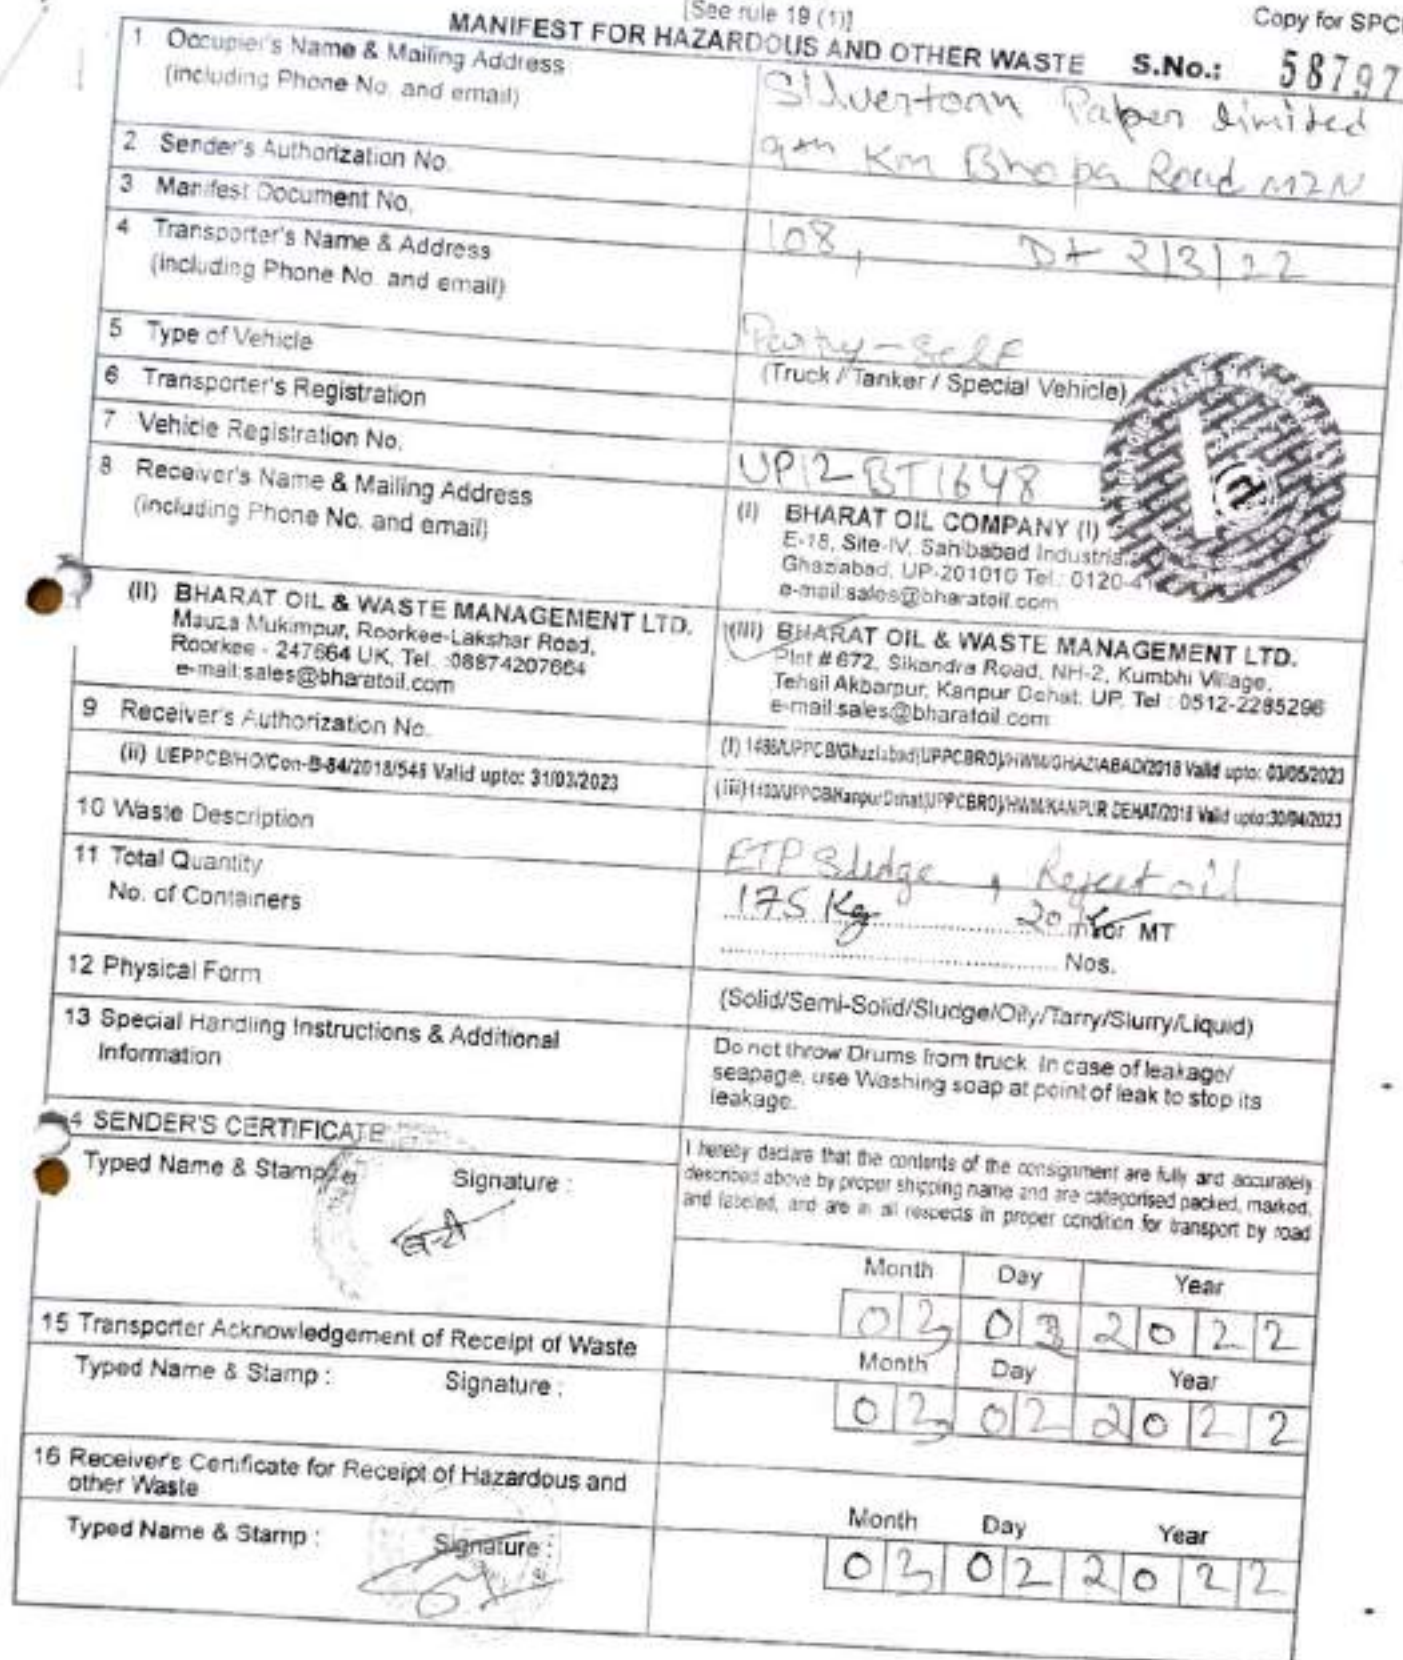 [See rule 19 (1)]
Copy for SPC
MANIFEST FOR HAZARDOUS AND OTHER WASTE S.No.: 58797
1 Occupier's Name & Mailing Address
(including Phone No. and email)
Silvertoan Paper Limited
9th Km Bhopa Road MZN
2 Sender's Authorization No.
3 Manifest Document No.
108, Dt 2/3/22
4 Transporter's Name & Address
(including Phone No. and email)
Party-Self
5 Type of Vehicle
(Truck / Tanker / Special Vehicle)
6 Transporter's Registration
7 Vehicle Registration No.
UP12 BT1648
8 Receiver's Name & Mailing Address
(including Phone No. and email)
(I) BHARAT OIL COMPANY (I)
E-18, Site-IV, Sahibabad Industria
Ghaziabad, UP-201010 Tel.: 0120-41
e-mail:sales@bharatoil.com
(II) BHARAT OIL & WASTE MANAGEMENT LTD.
Mauza Mukimpur, Roorkee-Lakshar Road,
Roorkee - 247664 UK, Tel. :08874207664
e-mail:sales@bharatoil.com
(III) BHARAT OIL & WASTE MANAGEMENT LTD.
Plot # 672, Sikandra Road, NH-2, Kumbhi Village,
Tehsil Akbarpur, Kanpur Dehat, UP, Tel : 0512-2285296
e-mail:sales@bharatoil.com
9 Receiver's Authorization No.
(I) 1486/UPPCB/Ghaziabad(UPPCBRO)/HWM/GHAZIABAD/2018 Valid upto: 03/05/2023
(ii) UEPPCB/HO/Con-B-84/2018/548 Valid upto: 31/03/2023
(iii) UPPCB/KanpurDehat(UPPCBRO)/HWM/KANPUR DEHAT/2018 Valid upto:30/04/2023
10 Waste Description
ETP Sludge, Reject oil
11 Total Quantity
175 Kg 20 or MT
No. of Containers
Nos.
12 Physical Form
(Solid/Semi-Solid/Sludge/Oily/Tarry/Slurry/Liquid)
13 Special Handling Instructions & Additional
Information
Do not throw Drums from truck. In case of leakage/
seepage, use Washing soap at point of leak to stop its
leakage.
4 SENDER'S CERTIFICATE
Typed Name & Stamp Signature :
I hereby declare that the contents of the consignment are fully and accurately
described above by proper shipping name and are categorised packed, marked,
and labeled, and are in all respects in proper condition for transport by road
Month Day Year
03 03 2022
15 Transporter Acknowledgement of Receipt of Waste
Typed Name & Stamp : Signature :
Month Day Year
03 02 2022
16 Receiver's Certificate for Receipt of Hazardous and
other Waste
Typed Name & Stamp : Signature :
Month Day Year
03 02 2022